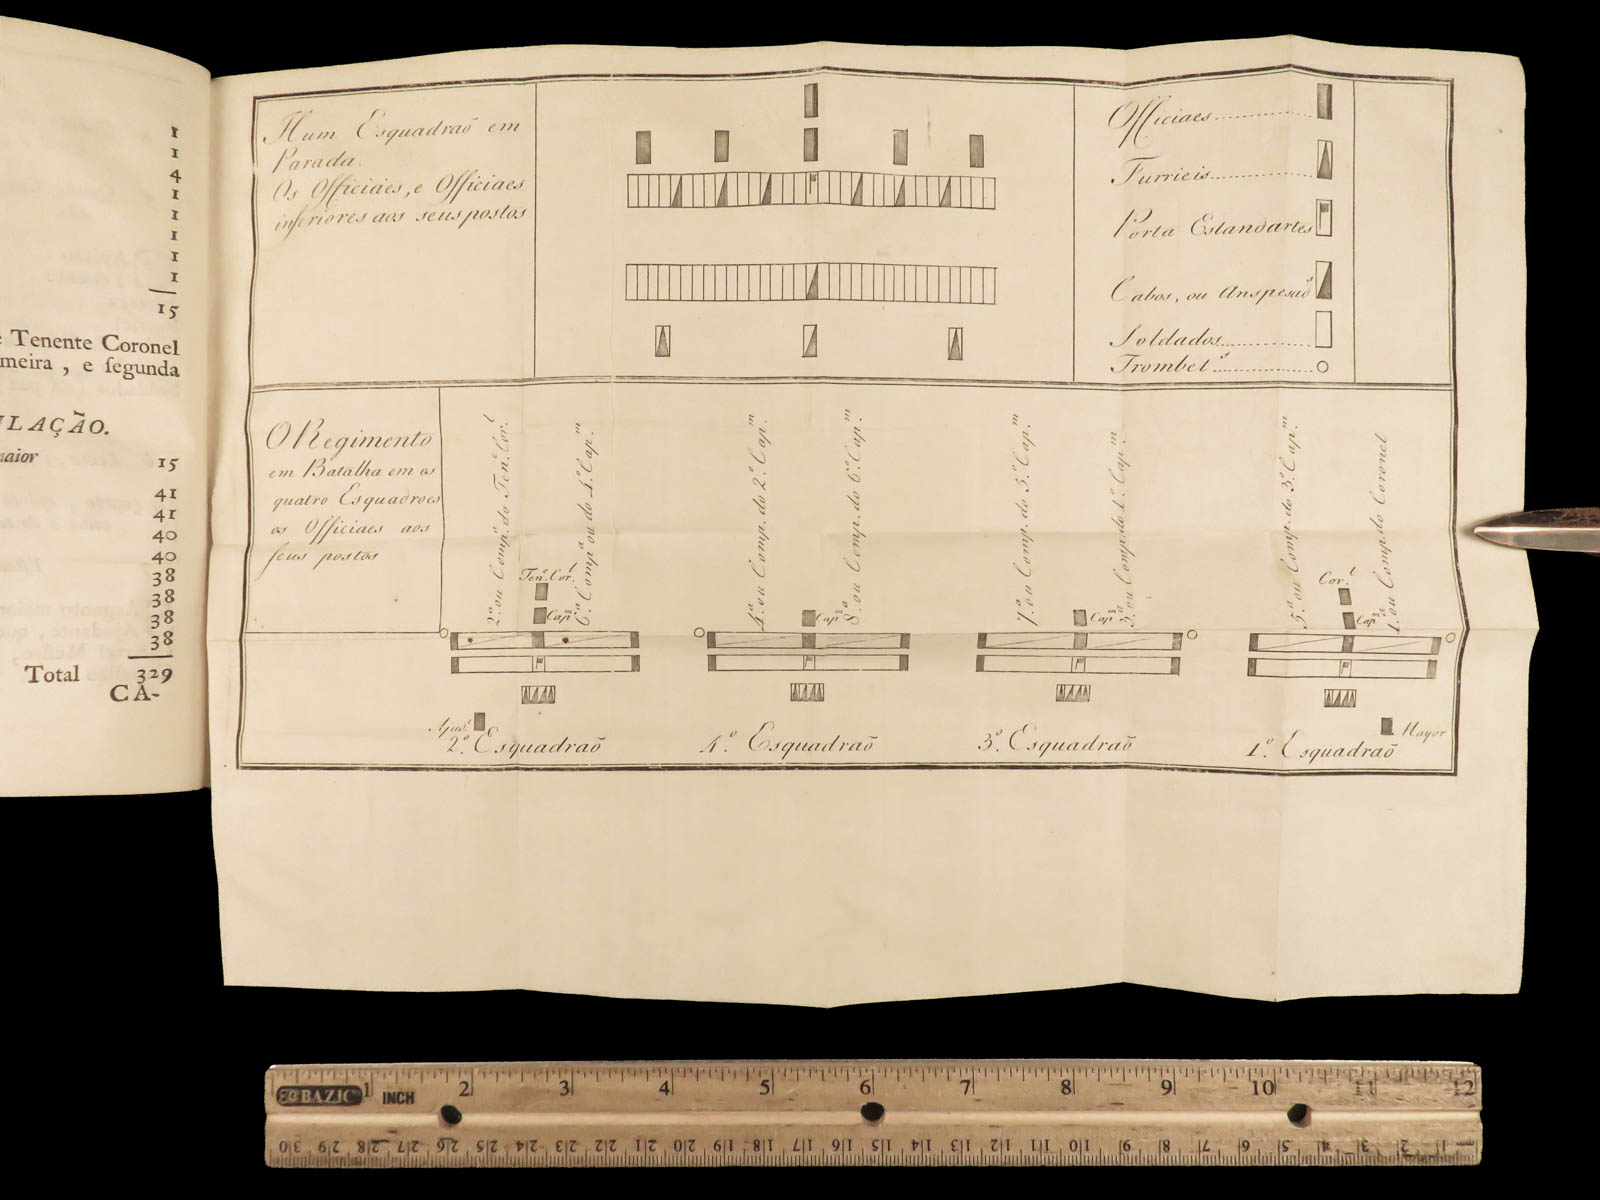 1
1
4
1
1
1
1
15
Tenente Coronel
meira , e ſegunda
LAÇÃO.
maior
15
41
41
40
40
38
38
38
38
Total 329
CA-
Hum Esquadraõ em
Parada.
Os Officiáes, e Officiaes
inferiores aos seus postos
Officiaes
Furrieis
Porta Estandartes
Cabos, ou Anspesaõs
Soldados
Trombets
O Regimento
em Batalha em os
quatro Esquadroes
os Officiaes aos
ſeus postos
2ª. ou Compª. do Tene. Corl.
6ª. Compª. ou do 4º. Capm.
4ª. ou Comp. do 2º. Capm.
8ª. ou Comp. do 6º. Capm.
7ª. ou Comp. do 5º. Capm.
3ª. ou Comp. do 1º. Capm.
5ª. ou Comp. do 3º. Capm.
1ª. ou Comp. do Coronel
Tene. Corl.
Capm.
Capm.
Capm.
Corl.
Capm.
Ajude.
Mayor
2º. Esquadraõ
4º. Esquadraõ
3º. Esquadraõ
1º. Esquadraõ
BAZIC 1 INCH 2 3 4 5 6 7 8 9 10 11 12
30 29 28 27 26 25 24 23 22 21 20 19 18 17 16 15 14 13 12 11 10 9 8 7 6 5 4 3 2 1 mm